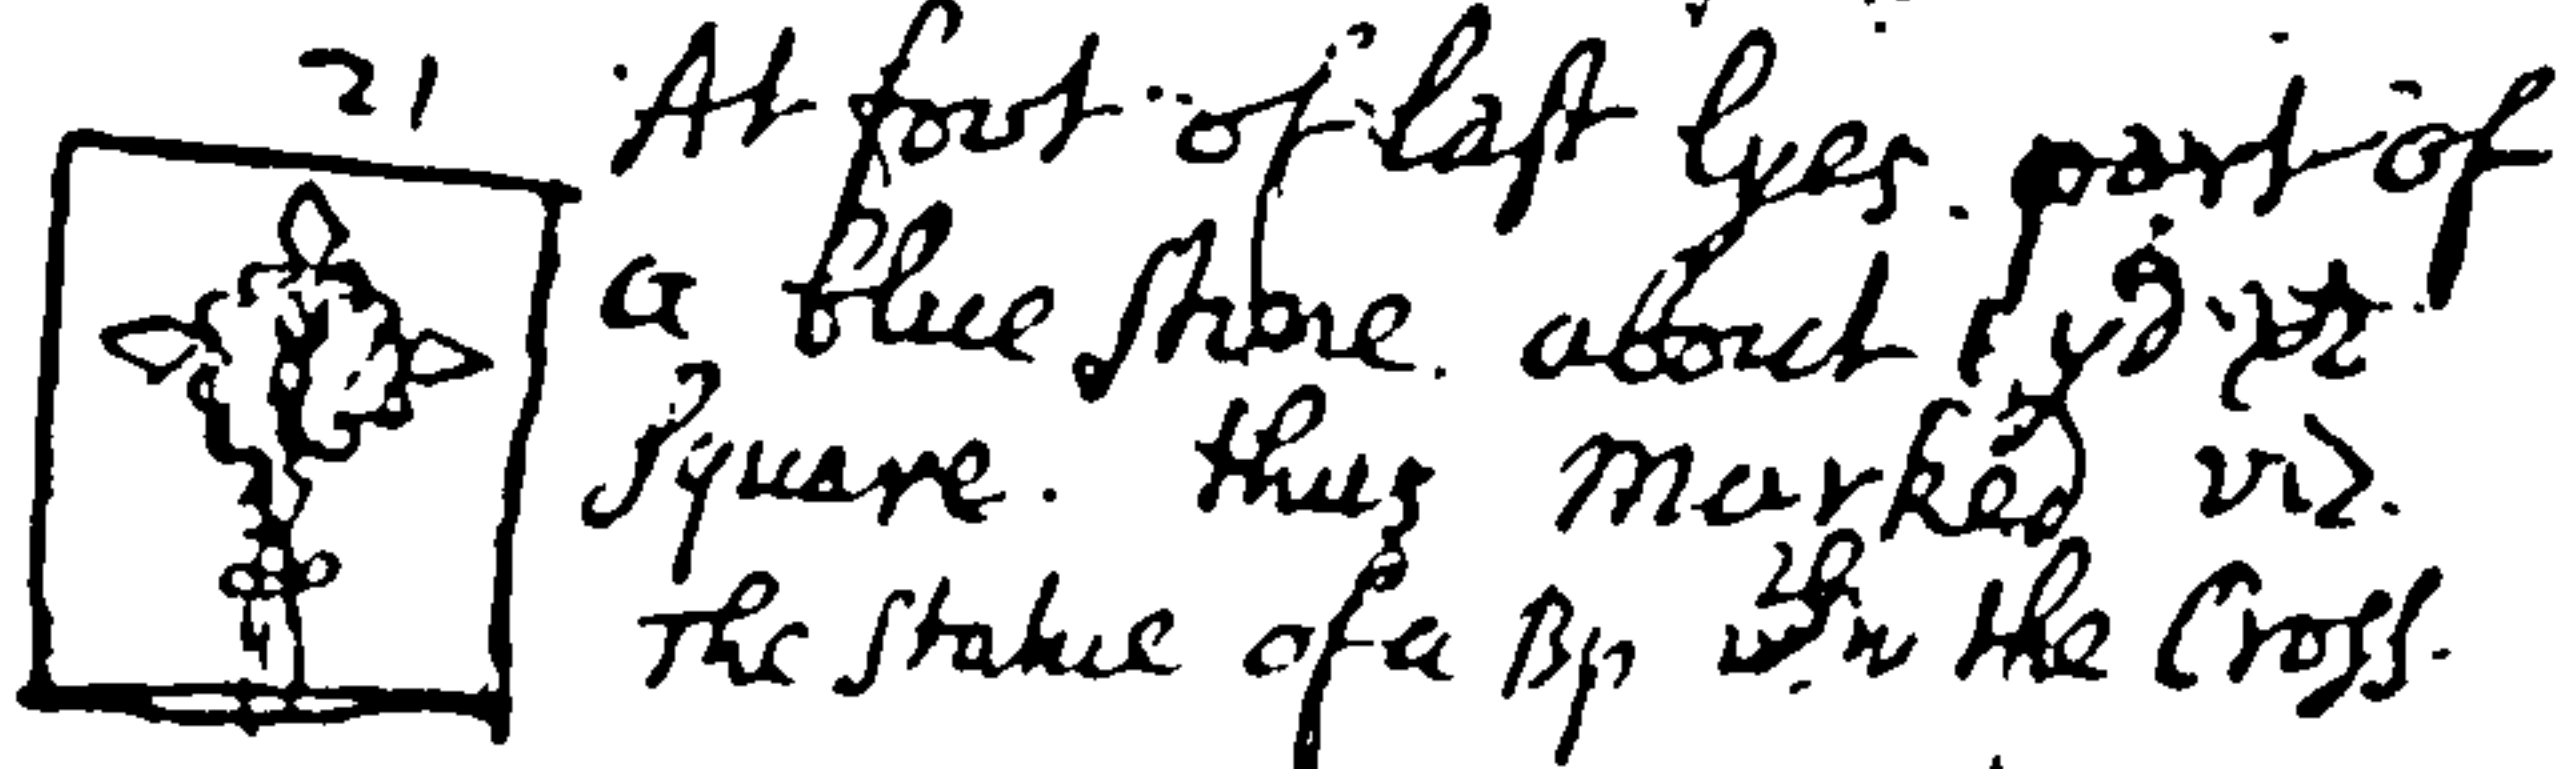 21
At foot of last lyes. part of
a blue stone. about 1 yd
square. thus marked viz.
The statue of a Bp in the Cross.